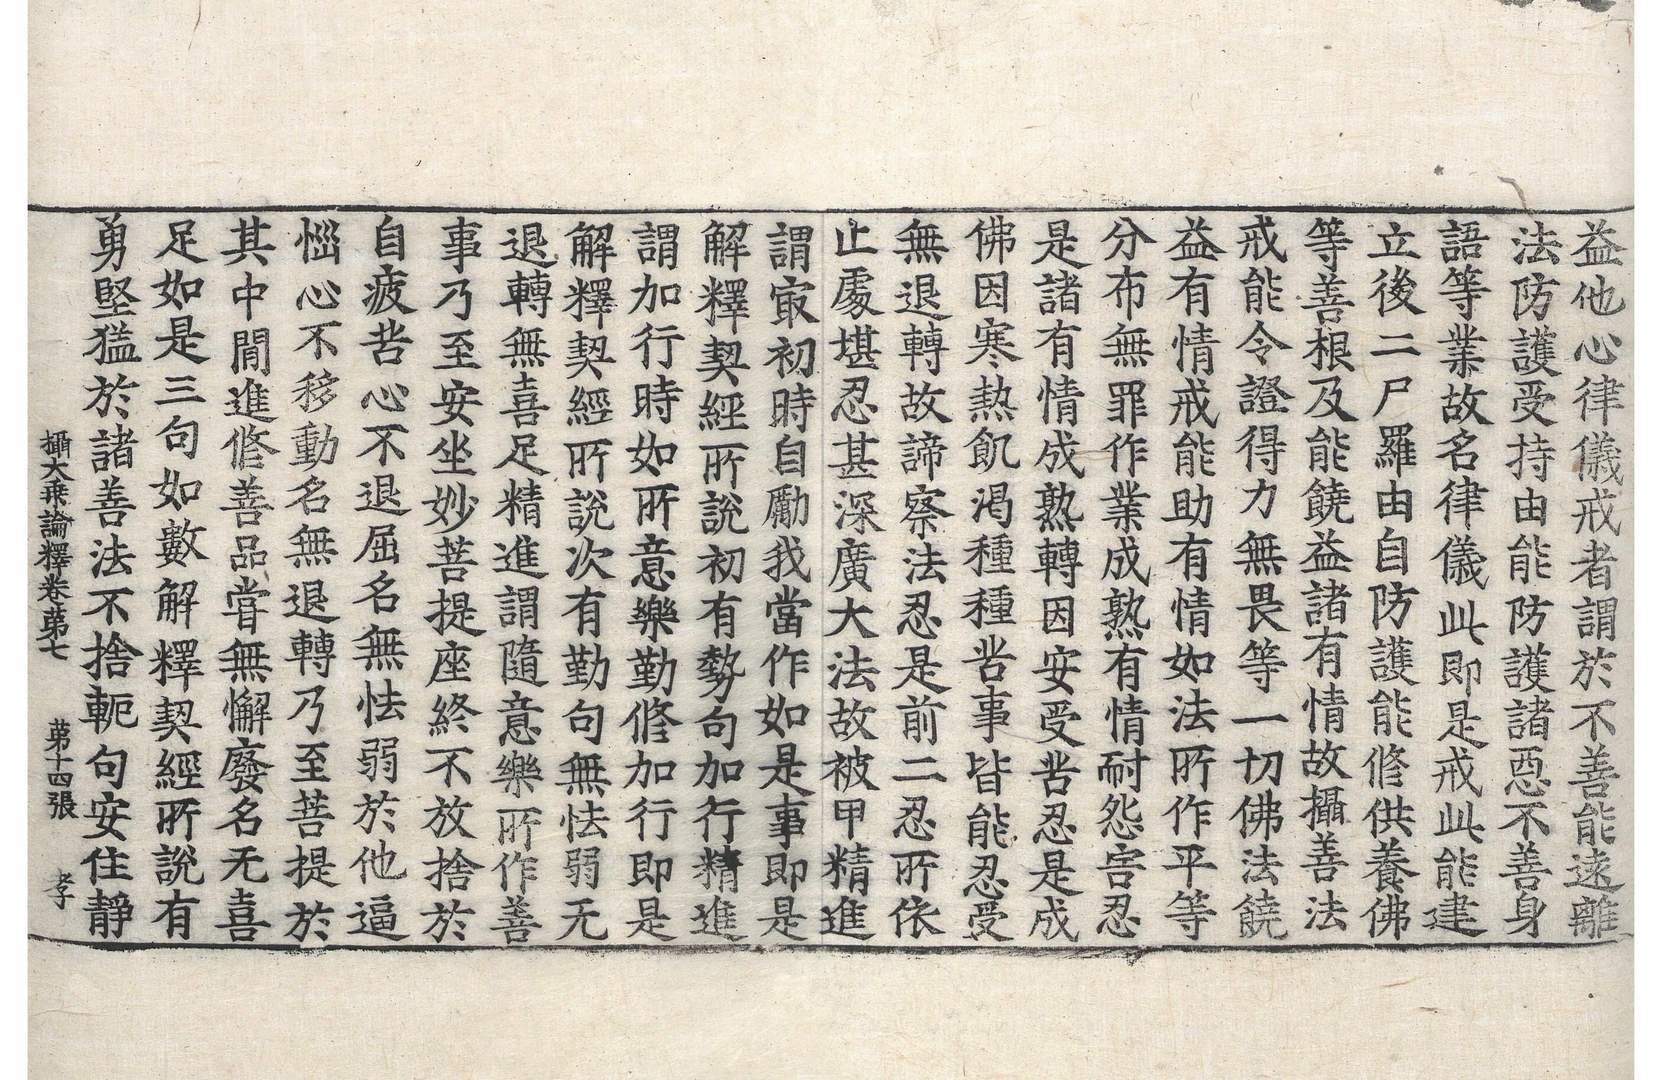 益他心律儀戒者謂於不善能遠離
法防護受持由能防護諸惡不善身
語等業故名律儀此即是戒此能建
立後二尸羅由自防護能修供養佛
等善根及能饒益諸有情故攝善法
戒能令證得力無畏等一切佛法饒
益有情戒能助有情如法所作平等
分布無罪作業成熟有情耐怨害忍
是諸有情成熟轉因安受苦忍是成
佛因寒熱飢渴種種苦事皆能忍受
無退轉故諦察法忍是前二忍所依
止處堪忍甚深廣大法故被甲精進
謂㝡初時自勵我當作如是事即是
解釋契經所說初有勢句加行精進
謂加行時如所意樂勤修加行即是
解釋契經所說次有勤句無怯弱无
退轉無喜足精進謂隨意樂所作善
事乃至安坐妙菩提座終不放捨於
自疲苦心不退屈名無怯弱於他逼
惱心不移動名無退轉乃至菩提於
其中閒進修善品嘗無懈廢名无喜
足如是三句如數解釋契經所說有
勇堅猛於諸善法不捨軛句安住靜
攝大乘論釋卷第七 第十四張 孝